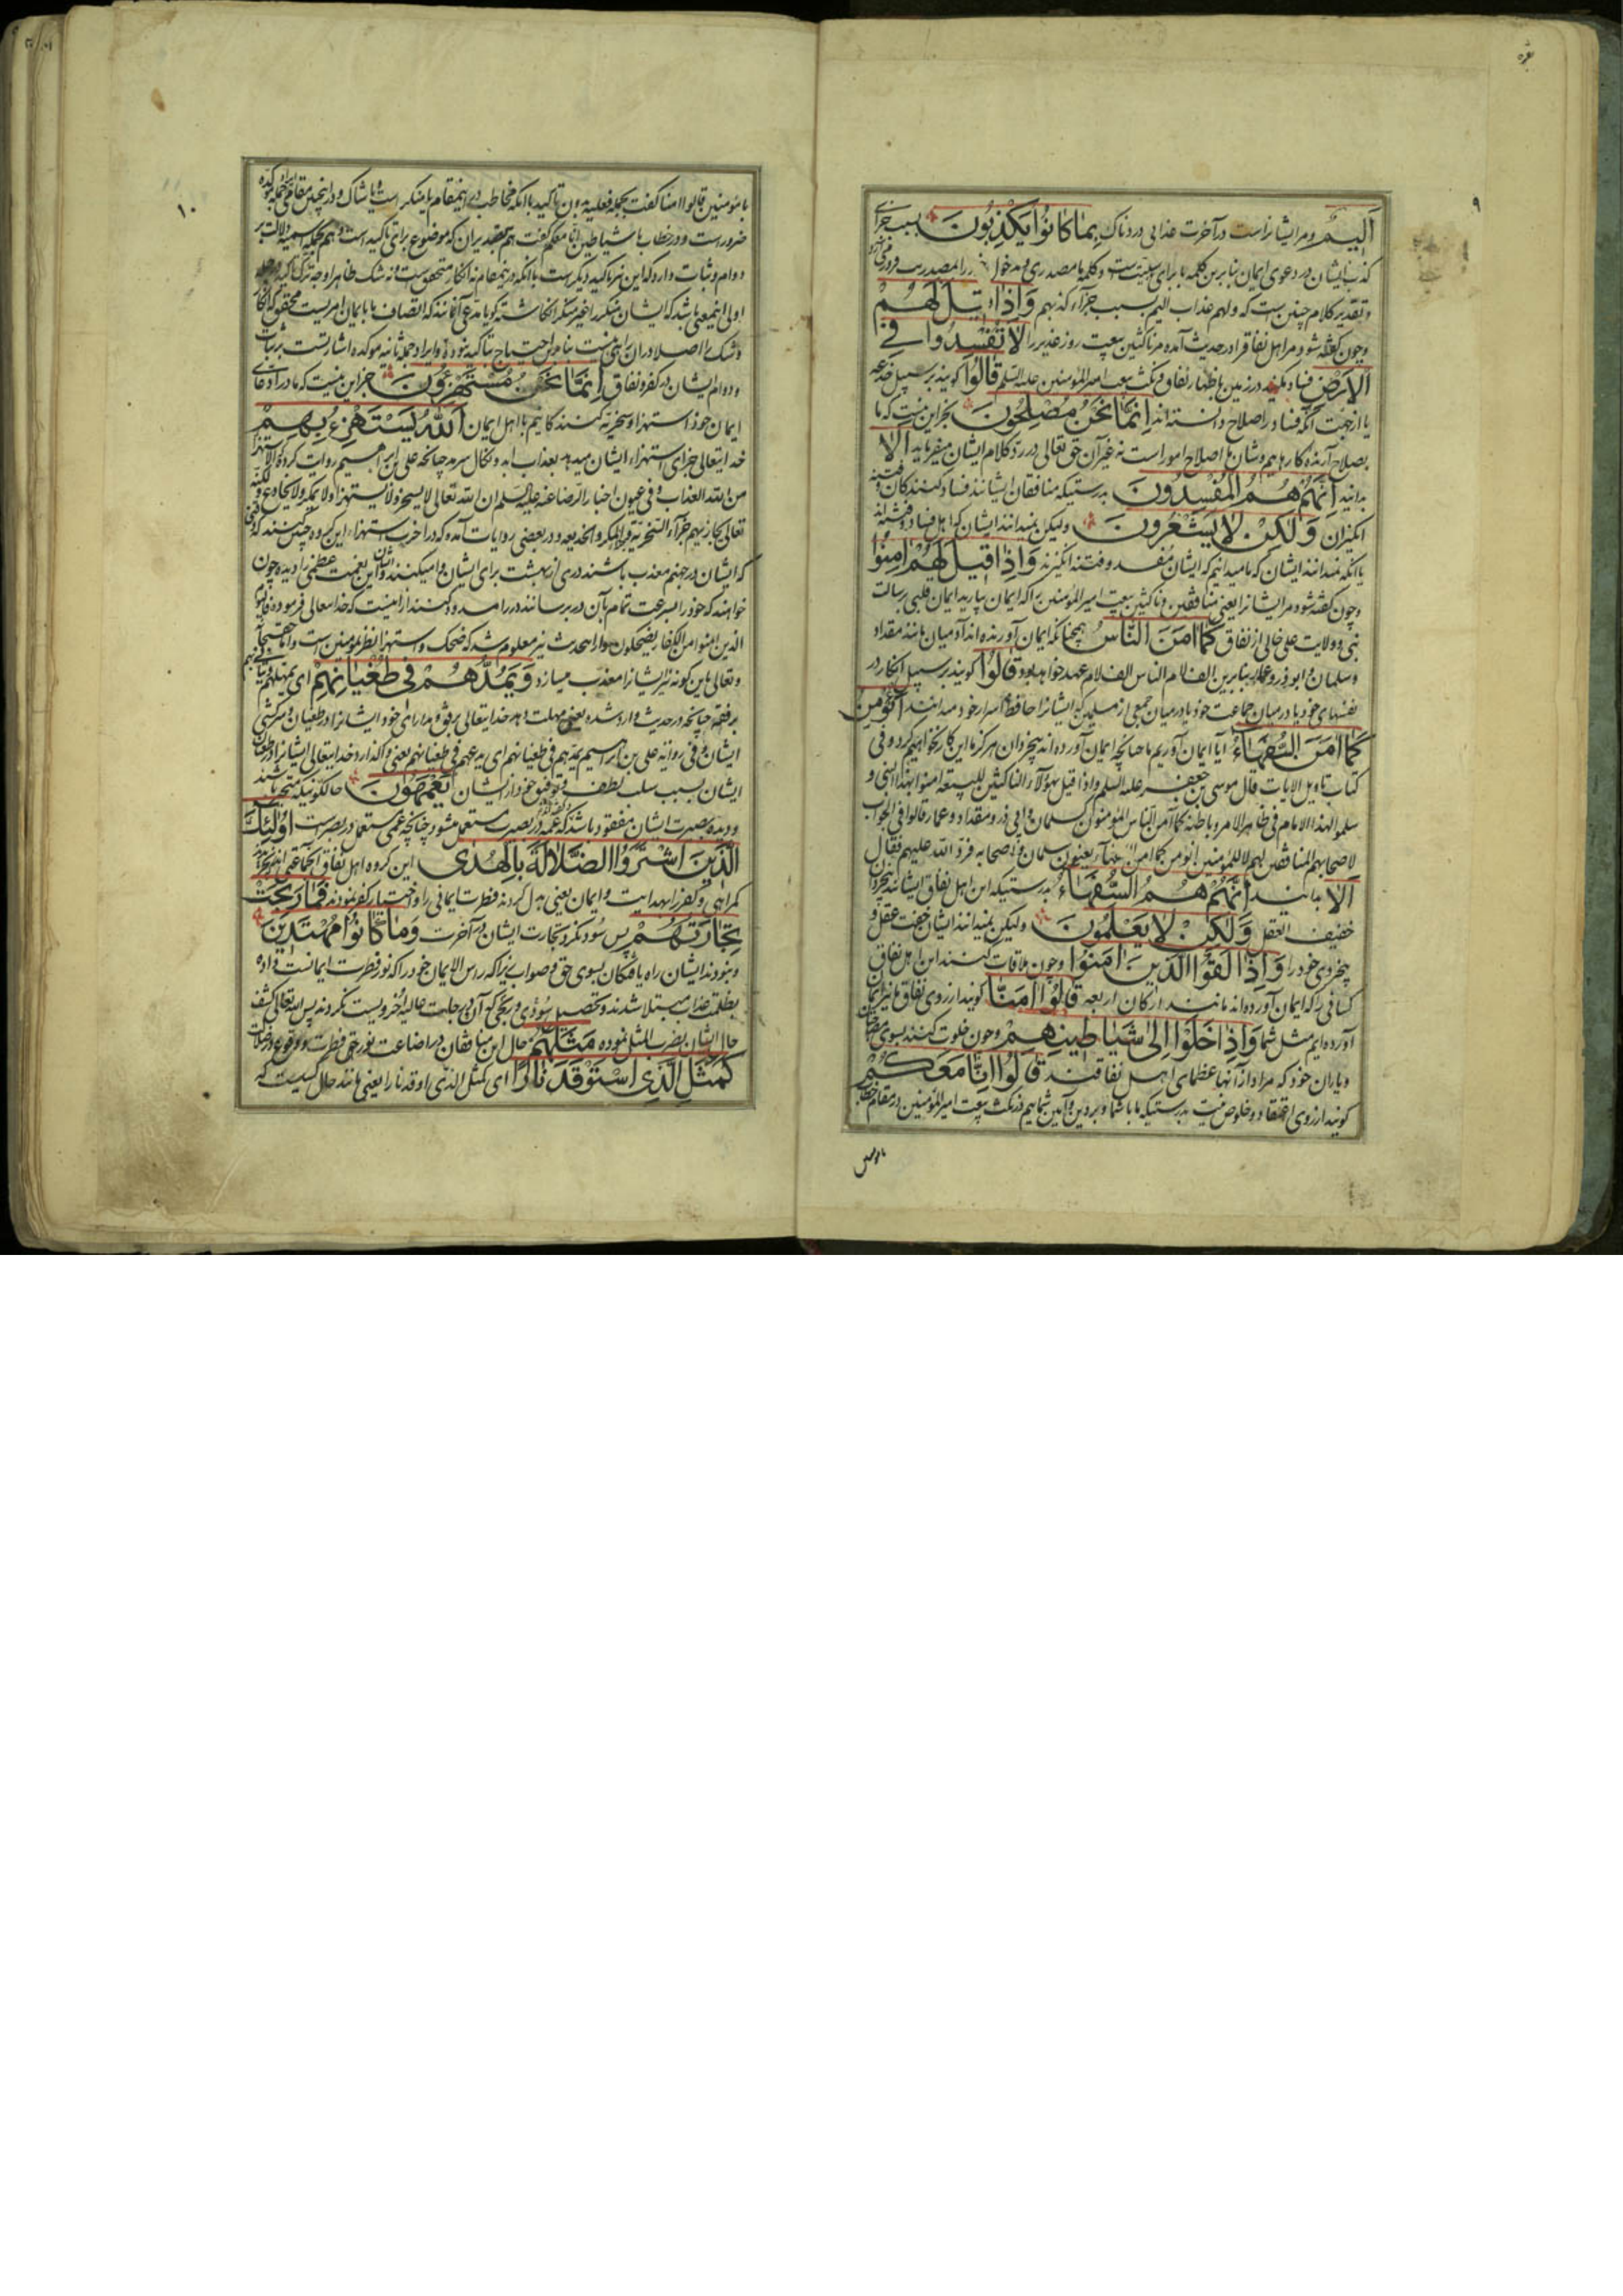 ۹
اَلیمٌ ومر ایشانراست در آخرت عذابی دردناک بِمٰا کٰانُوا یَکْذِبُونَ بسبب جزای
کذب ایشان در دعوی ایمان بنابرین کلمه با برای سببیّت است و کلمه ما مصدری
و تقدیر کلام چنین است که ولهم عذاب الیم بسبب جزآء کذبهم وَ اِذٰا قیلَ لَهُمْ
و چون گفته شود مر اهل نفاقرا در حدیث آمده مر ناکثین بیعت روز غدیر را لٰا تُفْسِدُوا فِی
الْاَرْضِ فساد مکنید در زمین باظهار نفاق و نکث بیعت امیر المؤمنین علیه السلم قٰالُوا گویند بر سبیل خدعه
یا از جهت آنکه فساد را صلاح دانسته‌اند اِنَّمٰا نَحْنُ مُصْلِحُونَ بجز این نیست که ما
بصلاح آرنده کارهایم و شان ما اصلاح امور است نه غیر آن حق تعالی در ردّ کلام ایشان میفرماید اَلٰا
بدانید اِنَّهُمْ هُمُ الْمُفْسِدُونَ بدرستیکه منافقان ایشانند فساد کنندکان و فتنه
انگیزان وَ لٰکِنْ لٰا یَشْعُرُونَ ولیکن نمیدانند ایشان که اهل فساد و فتنه‌اند
یا آنکه نمیدانند ایشان که ما میدانیم که ایشان مفسد و فتنه انگیزند وَ اِذٰا قیلَ لَهُمْ اٰمِنُوا
و چون گفته شود مر ایشانرا یعنی منافقین و ناکثین بیعت امیر المؤمنین را که ایمان بیارید ایمان قلبی برسالت
نبی و ولایت علی خالی از نفاق کَمٰا اٰمَنَ النّٰاسُ همچنانکه ایمان آورنده‌اند آدمیان مانند مقداد
و سلمان و ابوذر و عمار بنابرین الف لام الناس الف لام عهد خواهد بود قٰالُوا گویند بر سبیل انکار در
نفسهای خود یا در میان جماعت خود یا در میان جمعی از مسلمین که ایشانرا حافظ اسرار خود میدانند اَنُؤْمِنُ
کَمٰا اٰمَنَ السُّفَهٰاءُ آیا ایمان آوریم ما چنانچه ایمان آورده‌اند بیخردان هرگز ما این کار نخواهیم کرد و فی
کتاب تاویل الایات قال موسی بن جعفر علیه السلم و اذا قیل لهؤلآء الناکثین للبیعة امنوا بهذا النبی و
سلموا لهذا الامام فی ظاهر الامر و باطنه کما آمن الناس المؤمنون کسلمان و ابی ذر و مقداد و عمار قالوا فی الجواب
لاصحابهم المنافقین لهم لا للمؤمنین انؤمن کما امن السفهآء یعنون سلمان و اصحابه فردّ الله علیهم فقال
اَلٰا بدانند اِنَّهُمْ هُمُ السُّفَهٰاءُ بدرستیکه این اهل نفاق ایشانند بیخردان
خفیف العقل وَ لٰکِنْ لٰا یَعْلَمُونَ ولیکن نمیدانند ایشان خفت عقل و
بیخردی خود را وَ اِذٰا لَقُوا الَّذینَ اٰمَنُوا و چون ملاقات کنند این اهل نفاق
کسانی را که ایمان آورده‌اند مانند ارکان اربعه قٰالُوا اٰمَنّٰا گویند از روی نفاق ما نیز ایمان
آورده‌ایم مثل شما وَ اِذٰا خَلَوْا اِلیٰ شَیٰاطینِهِمْ و چون خلوت کنند بسوی
و یاران خود که مراد از آنها عظمای اهل نفاقند قٰالُوا اِنّٰا مَعَکُمْ
گویند از روی اعتقاد و خلوص نیت بدرستیکه ما با شما و بر دین و آئین شمائیم در نکث بیعت امیر المؤمنین در مقام خطاب
بامومنین
۱۰
بامؤمنین قالوا امنا گفت بجمله فعلیه بدون تاکید با آنکه مخاطب در اینمقام یا منکر است و یا شاک و در اینچنین مقام جمله مؤکده
ضرور است و در خطاب با شیاطین انا معکم گفت هم بتصدیر ان که موضوع برای تاکید است و هم بجمله اسمیه که دلالت بر
دوام و ثبات دارد که این نیز تاکید دیگر است با آنکه در ینمقام نه انکار متحقق است و نه شک ظاهرا وجه ترک تاکید در جمله
اولی اینمعنی باشد که ایشان منکر را غیر منکر انگاشته گویا مدعی آنانند که اتصاف ما بایمان امریست محقق که انکار
و شک را اصلا در ان راهی نیست بنابراین احتیاج بتاکید نبوده و ایراد جمله ثانیه موکده اشارتست بر ثبات
و دوام ایشان در کفر و نفاق اِنَّمٰا نَحْنُ مُسْتَهْزِؤُنَ جز این نیست که ما در ادعای
ایمان خود استهزا و سخریه کنندکانیم با اهل ایمان اَللّٰهُ یَسْتَهْزِئُ بِهِمْ
خدایتعالی جزای استهزاء ایشان میدهد بعذاب ابد و نکال سرمد چنانچه علی بن ابراهیم روایت کرده که الاستهزاء
من الله العذاب و فی عیون اخبار الرضا عنه علیه السلم ان الله تعالی لا یسخر و لا یستهزا و لا یمکر و لا یخادع ولکنه
تعالی یجازیهم جزآء السخریة و جزاء المکر و الخدیعه و در بعضی روایات آمده که در آخرت استهزاء این گروه چنین کنند که وقتی
که ایشان در جهنم معذب باشند دری از بهشت برای ایشان وامیکنند و ایشان این نعمت عظمی را دیده چون
خواهند که خود را بسرعت تمام بآن در برسانند در را مسدود کنند از اینست که خدایتعالی فرموده فالیوم
الذین امنوا من الکفار یضحکون و از اینحدیث نیز معلوم شد که ضحک و استهزا نظر بمومنین است و انما حقتعالی
و تعالی باین گونه نیز ایشانرا معذب میسازد وَ یَمُدُّهُمْ فی طُغْیٰانِهِمْ ای یمهلهم
برفقه چنانچه در حدیث وارد شده یعنی مهلت دهد خدایتعالی برفق و مدارای خود ایشانرا در طغیان و سرکشی
ایشان و فی روایة علی بن ابراهیم یمدهم فی طغیانهم ای یدعهم فی طغیانهم یعنی واگذارد خدایتعالی ایشانرا در طغیان
ایشان بسبب سلب لطف و توفیق خود از ایشان یَعْمَهُونَ حالکونیکه متحیر باشند
و دیده بصیرت ایشان مفقود باشد که عمه در بصیرت مستعمل میشود چنانچه عمی مستعمل در بصر است اُولٰئِکَ
الَّذینَ اشْتَرَوُا الضَّلٰالَةَ بِالْهُدیٰ این گروه اهل نفاق آنجماعتی‌اند که خریده‌اند
گمراهی و کفر را بهدایت و ایمان یعنی بدل کردند فطرت ایمانی را و اختیار کفر نمودند فَمٰا رَبِحَتْ
تِجٰارَتُهُمْ پس سود نکرد تجارت ایشان در آخرت وَ مٰا کٰانُوا مُهْتَدینَ
و نبودند ایشان راه یافتگان بسوی حق و صواب زیرا که راس المال ایمان خود را که نور فطرت ایمانست داده
بظلمت عذاب مبتلا شدند و تحصیل سودی و ربحی که آن درجات عالیه اُخرویست نکردند پس الله تعالی کشف
حال ایشان بضرب المثل نموده مَثَلُهُمْ حال این منافقان در اضاعت نور حق فطرت و وقوع در ضلالت
کَمَثَلِ الَّذِی اسْتَوْقَدَ نٰارًا ای کمثل الذی اوقد نارا یعنی مانند حال کسیست که